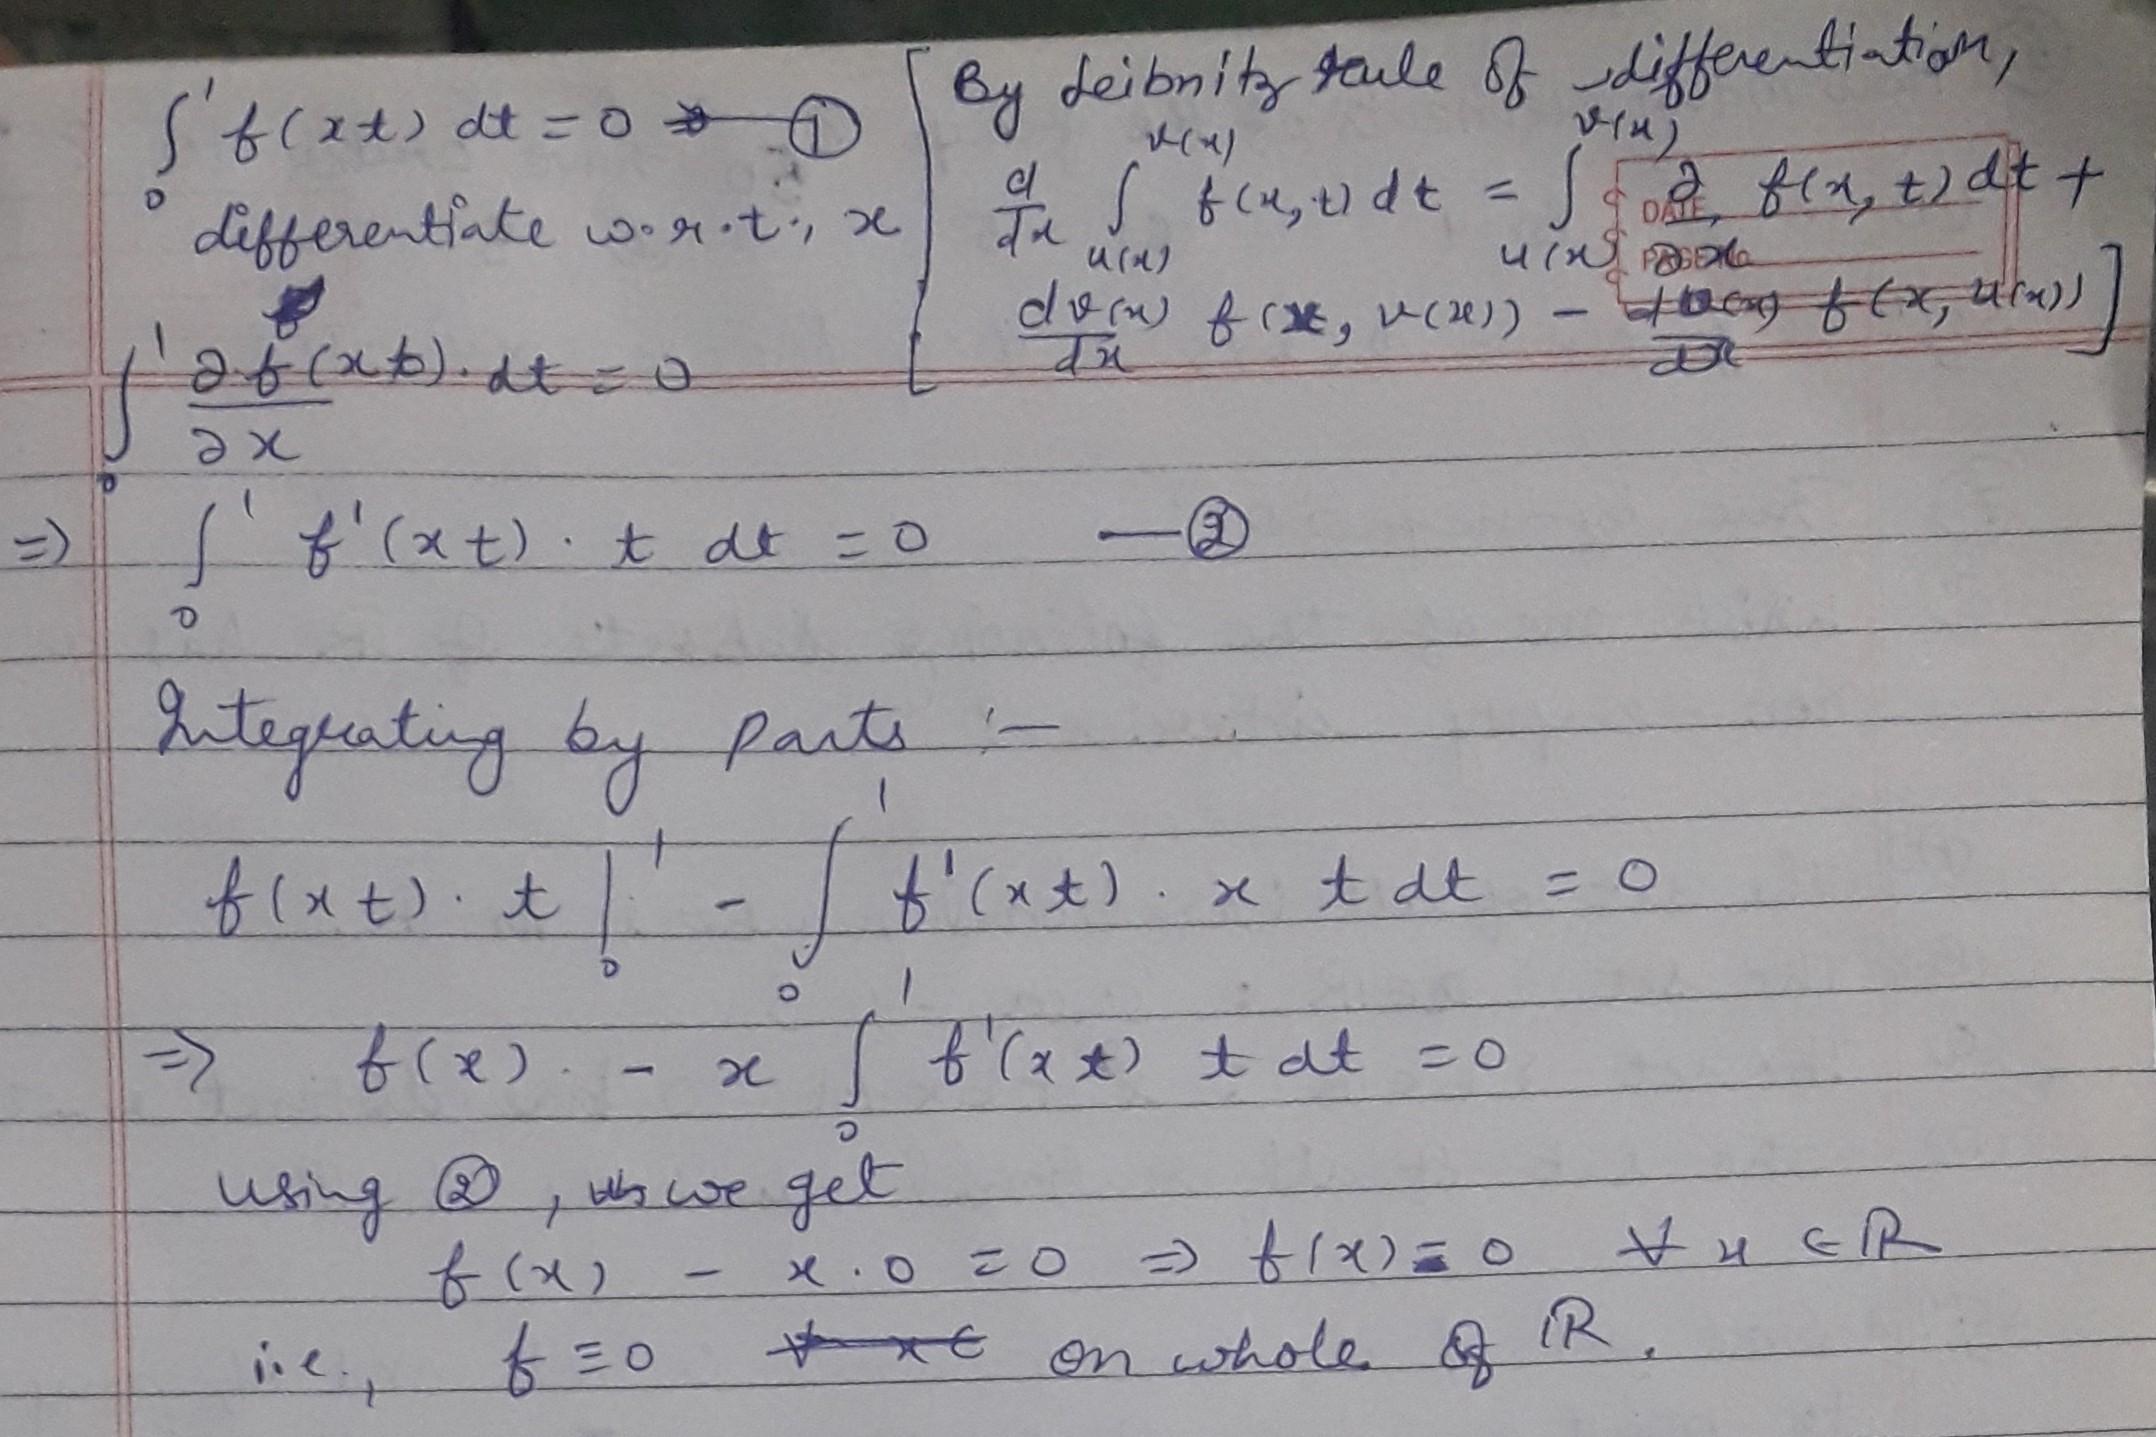 ∫₀¹ f(xt) dt = 0 — ①
differentiate w.r.t., x
[By Leibnitz rule of differentiation,
d/dx ∫_{u(x)}^{v(x)} f(x,t) dt = ∫_{u(x)}^{v(x)} ∂/∂x f(x,t) dt +
dv(x)/dx f(x, v(x)) - du(x)/dx f(x, u(x))]
DATE
∫₀¹ ∂f(xt)/∂x · dt = 0
⇒ ∫₀¹ f'(xt) · t dt = 0 — ②
Integrating by parts :-
f(xt) · t |₀¹ - ∫₀¹ f'(xt) · x t dt = 0
⇒ f(x) · - x ∫₀¹ f'(xt) t dt = 0
using ②, we get
f(x) - x · 0 = 0 ⇒ f(x) = 0 ∀ x ∈ ℝ
i.e., f ≡ 0 on whole of ℝ.